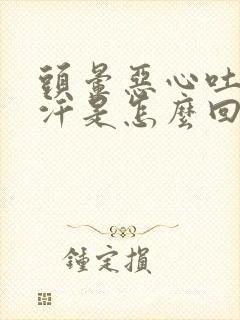 頭暈惡心吐
汗是怎麼回
鍾定損